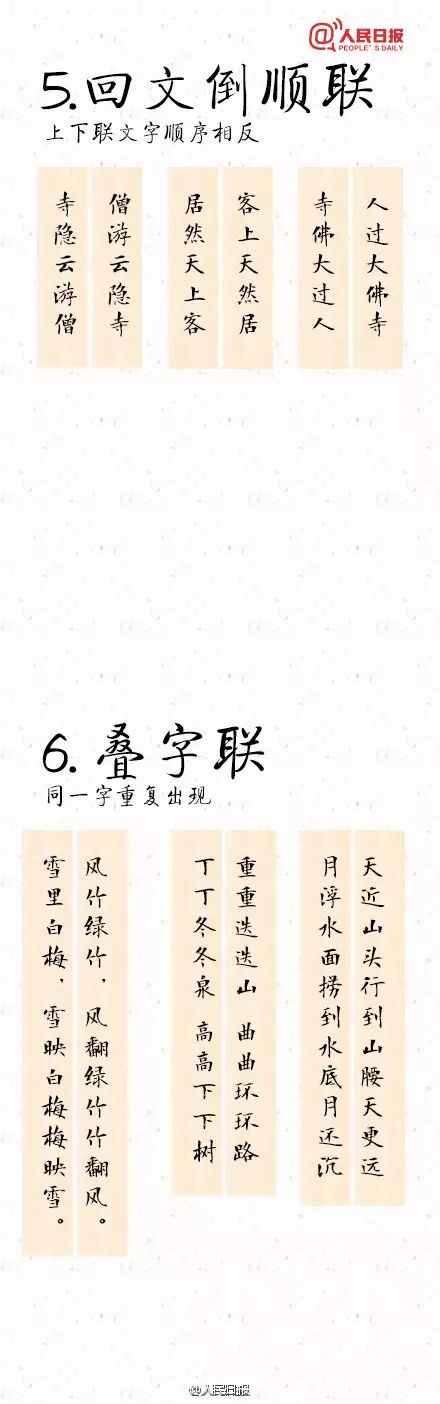 @人民日报
PEOPLE'S DAILY
5.回文倒顺联
上下联文字顺序相反
人过大佛寺
寺佛大过人
客上天然居
居然天上客
僧游云隐寺
寺隐云游僧
6.叠字联
同一字重复出现
天近山头行到山腰天更远
月浮水面捞到水底月还沉
重重迭迭山 曲曲环环路
丁丁冬冬泉 高高下下树
风竹绿竹，风翻绿竹竹翻风。
雪里白梅，雪映白梅梅映雪。
@人民日报